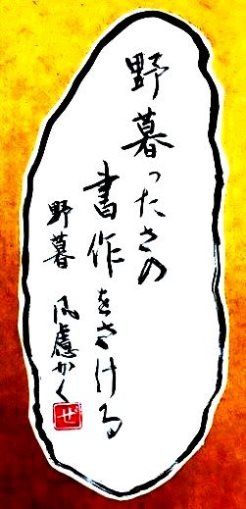 野暮ったさの
書作をさける
野暮 慮かく
ぜ